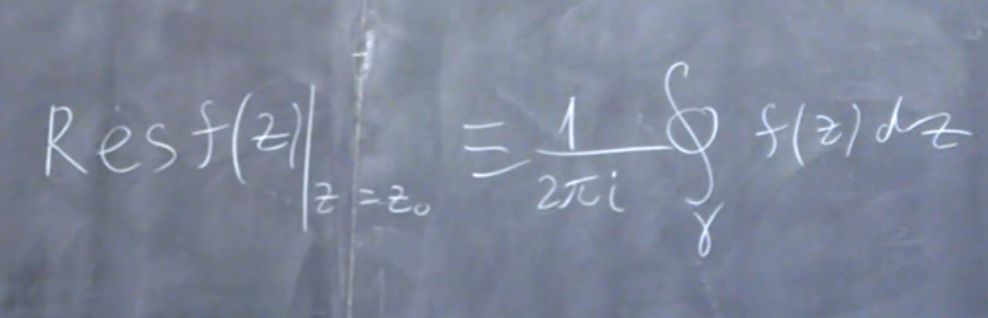 Res f(z)|_{z=z₀} = \frac{1}{2πi} ∮_γ f(z) dz